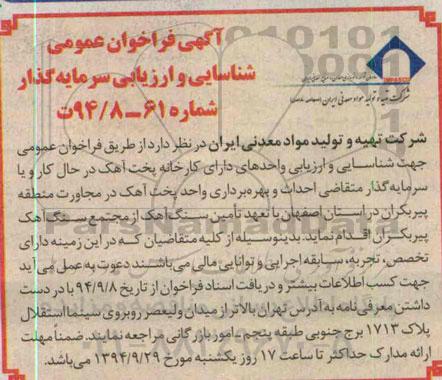 آگهی فراخوان عمومی
شناسایی و ارزیابی سرمایه‌گذار
شماره ۶۱-۹۴/۸ت
IMPASCO
شرکت تهیه و تولید مواد معدنی ایران
شرکت تهیه و تولید مواد معدنی ایران در نظر دارد از طریق فراخوان عمومی
جهت شناسایی و ارزیابی واحدهای دارای کارخانه پخت آهک در حال کار و یا
سرمایه‌گذار متقاضی احداث و بهره‌برداری واحد پخت آهک در مجاورت منطقه
پیربکران در استان اصفهان با تعهد تأمین سنگ آهک از مجتمع سنگ آهک
پیربکران اقدام نماید. بدینوسیله از کلیه متقاضیان که در این زمینه دارای
تخصص، تجربه، سابقه اجرایی و توانایی مالی می‌باشند دعوت به عمل می‌آید
جهت کسب اطلاعات بیشتر و دریافت اسناد فراخوان از تاریخ ۹۴/۹/۸ با در دست
داشتن معرفی نامه به آدرس تهران بالاتر از میدان ولیعصر روبروی سینما استقلال
پلاک ۱۷۱۳ برج جنوبی طبقه پنجم، امور بازرگانی مراجعه نمایند. ضمناً مهلت
ارائه مدارک حداکثر تا ساعت ۱۷ روز یکشنبه مورخ ۱۳۹۴/۹/۲۹ می‌باشد.